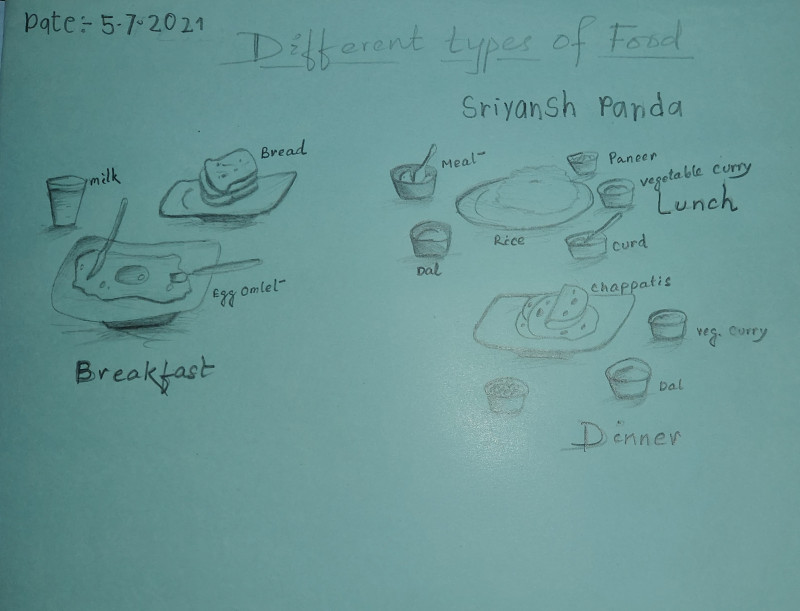 Date:- 5-7-2021
Different types of Food
Sriyansh Panda
milk
Bread
Egg omlet
Breakfast
Meat
Paneer
vegetable curry
Lunch
Rice
Curd
Dal
chappatis
veg. curry
Dal
Dinner